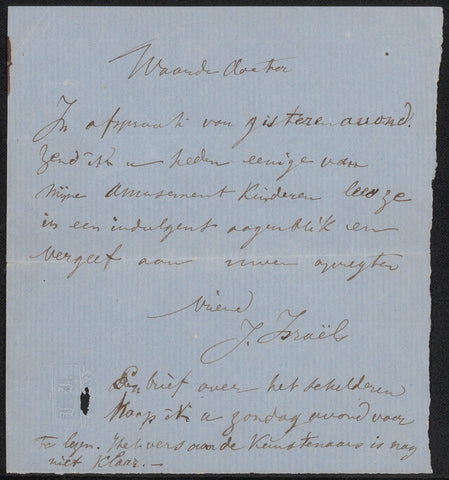 Waarde doctor
In afspraak van gisteren avond.
zend ik u heden eenige van
mijne Amusement Kinderen lees ze
in een indulgent oogenblik en
vergeef aan uwen opregten
vriend
J. Israëls
Een brief over het schilderen
Hoop ik u zondag avond voor
te lezen. Het vers aan de Kunstenaars is nog
niet klaar. —